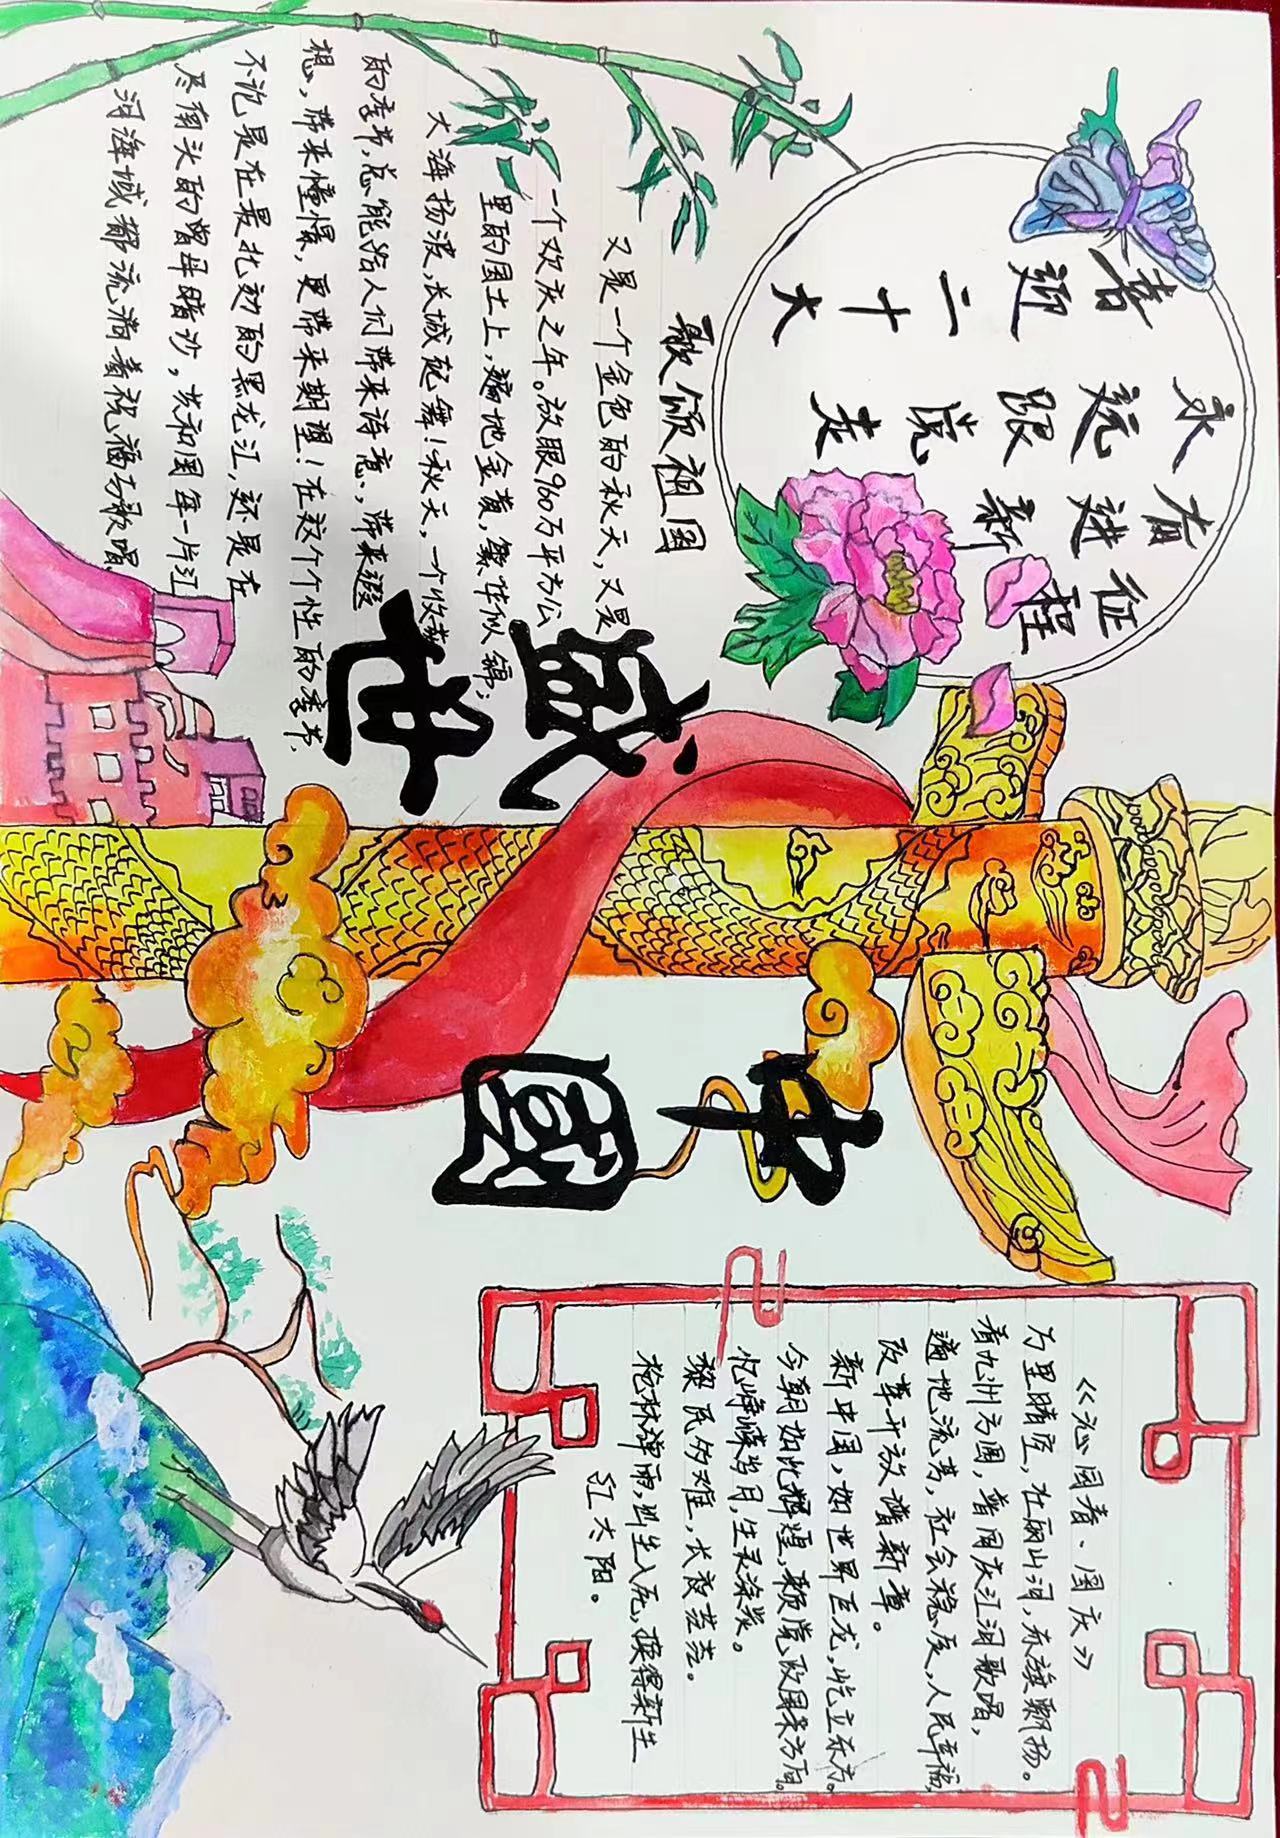 喜迎二十大
永远跟党走
奋进新征程
歌颂祖国
又是一个金色的秋天，又是
一个欢庆之年。放眼960万平方公
里的国土上，遍地金黄，繁华似锦；
大海扬波，长城起舞！秋天，一个收获
的季节，总能给人们带来诗意，带来遐
想，带来憧憬，更带来期望！在这个个性的季节，
不论是在最北边的黑龙江，还是在
尽南头的曾母暗沙，共和国每一片江
河海域都流淌着祝福与歌唱
盛世
中国
《沁园春·国庆》
万里晴空，壮丽山河，赤旗飘扬。
看九州方圆，普同庆江河歌唱，
遍地流芳，社会稳定，人民幸福，
改革开放谱新章。
新中国，如世界巨龙，屹立东方。
今朝如此辉煌，赖党政国策方向。
忆峥嵘岁月，生灵涂炭。
黎民多难，长夜茫茫。
枪林弹雨，出生入死，换得新生
红太阳。